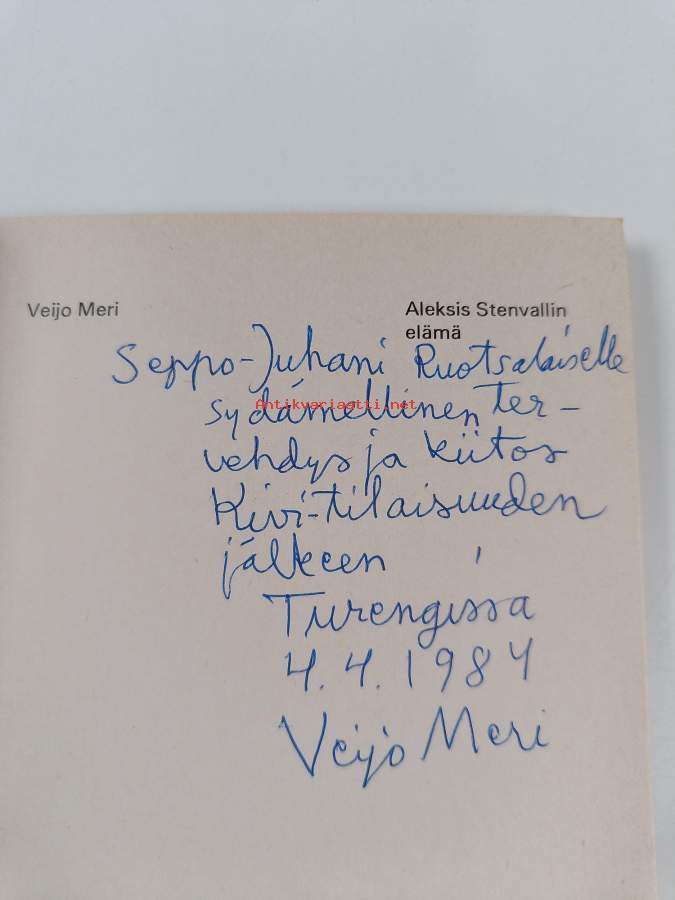 Veijo Meri
Aleksis Stenvallin
elämä
Seppo-Juhani Ruotsalaiselle
sydämellinen ter-
Antikvariaatti.net
vehdys ja kiitos
Kivi-tilaisuuden
jälkeen
Turengissa
4.4.1984
Veijo Meri